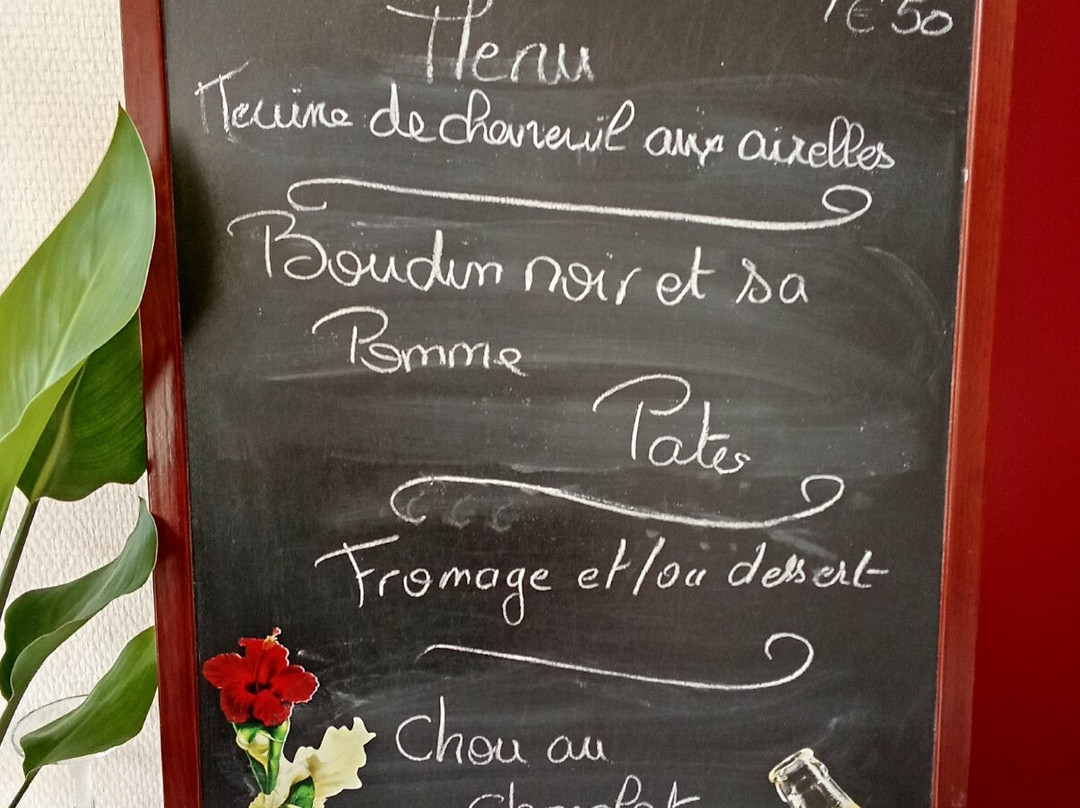 €50
Menu
Terrine de chevreuil aux airelles
Boudin noir et sa
Pomme
Pates
Fromage et/ou dessert
Chou au
chocolat